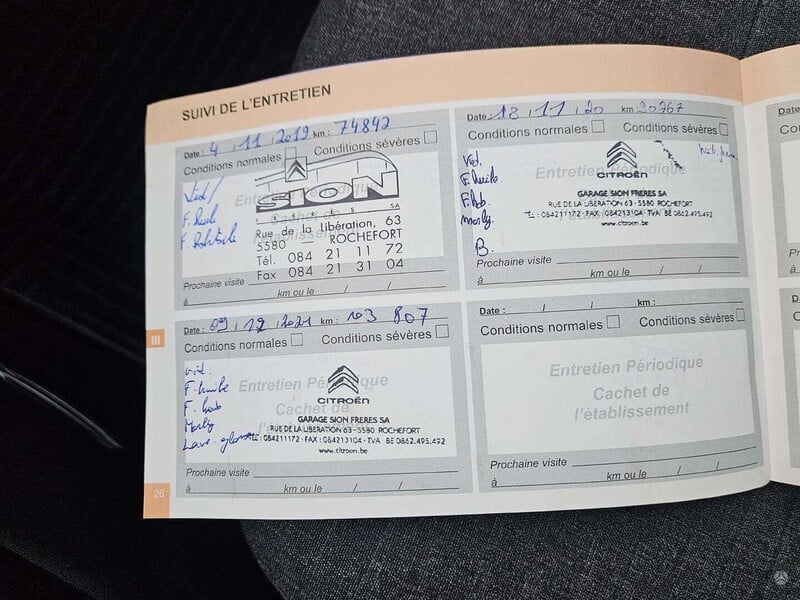 SUIVI DE L'ENTRETIEN
Date : 4 , 11 , 2019 km : 74842
Conditions normales Conditions sévères
Entretien Périodique
F.
F.
SION
SA
Cachet de
l'établissement
Rue de la Libération, 63
5580 ROCHEFORT
Tél. 084 21 11 72
Fax 084 21 31 04
Prochaine visite
à km ou le / /
Date : 12 , 11 , 20 km : 90767
Conditions normales Conditions sévères
Entretien Périodique
Vid.
F. huile
F. hab.
B.
CITROËN
GARAGE SION FRERES SA
RUE DE LA LIBERATION 63 - 5580 ROCHEFORT
TEL : 084211172 - FAX : 084213104 - TVA BE 0862.495.492
www.citroen.be
Prochaine visite
à km ou le / /
Date : 09 , 12 , 2021 km : 103 807
Conditions normales Conditions sévères
Entretien Périodique
Cachet de
l'établissement
vid.
F. huile
F. hab
Lave-glace
CITROËN
GARAGE SION FRERES SA
RUE DE LA LIBERATION 63 - 5580 ROCHEFORT
: 084211172 - FAX : 084213104 - TVA BE 0862.495.492
www.citroen.be
Prochaine visite
à km ou le / /
Date : / / km :
Conditions normales Conditions sévères
Entretien Périodique
Cachet de
l'établissement
Prochaine visite
à km ou le / /
III
26